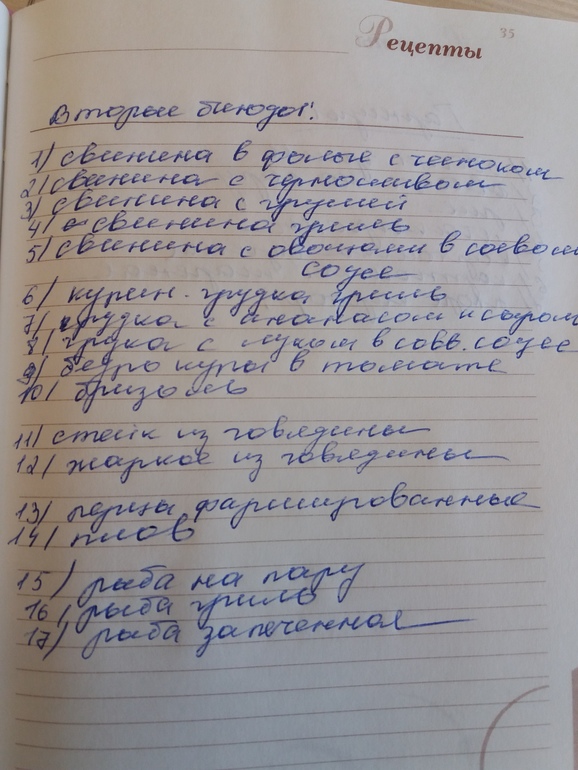 35
Рецепты
Вторые блюда!
1) свинина в фольге с чесноком
2) свинина с черносливом
3) свинина с грушей
4) свинина гриль
5) свинина с овощами в соевом
соусе
6) курин. грудка гриль
7) грудка с ананасом и сыром
8) грудка с луком в соев. соусе
9) бедро куры в томате
10) бризоль
11) стейк из говядины
12) жаркое из говядины
13) перцы фаршированные
14) плов
15) рыба на пару
16) рыба гриль
17) рыба запеченная